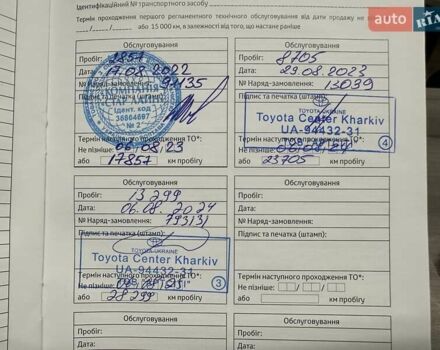 Ідентифікаційний № транспортного засобу
Термін проходження першого регламентного технічного обслуговування від дати продажу не
або 15 000 км, в залежності від того, що настане раніше
AUTO
RIA
Обслуговування
Пробіг: 2857
Дата: 17.08.2022
№ Наряд-замовлення:
Підпис та печатка (штамп):
КОМПАНІЯ
Ідент. код
№ 2
Термін наступного проходження ТО*:
Не пізніше: 06/08/23
або 17857 км пробігу
Обслуговування
Пробіг: 8705
Дата: 29.08.2023
№ Наряд-замовлення: 13039
Підпис та печатка (штамп):
TOYOTA-UKRAINE
Toyota Center Kharkiv
UA-94432-31
4
Не пізніше:
або 23705 км пробігу
Обслуговування
Пробіг: 13299
Дата: 06.08.2024
№ Наряд-замовлення: 793131
Підпис та печатка (штамп):
TOYOTA-UKRAINE
Toyota Center Kharkiv
UA-94432-31
3
Термін наступного проходження ТО*:
Не пізніше:
або 28299 км пробігу
Обслуговування
Пробіг:
Дата:
№ Наряд-замовлення:
Підпис та печатка (штамп):
Термін наступного проходження ТО*:
Не пізніше:
або км пробігу
Обслуговування
Обслуговування